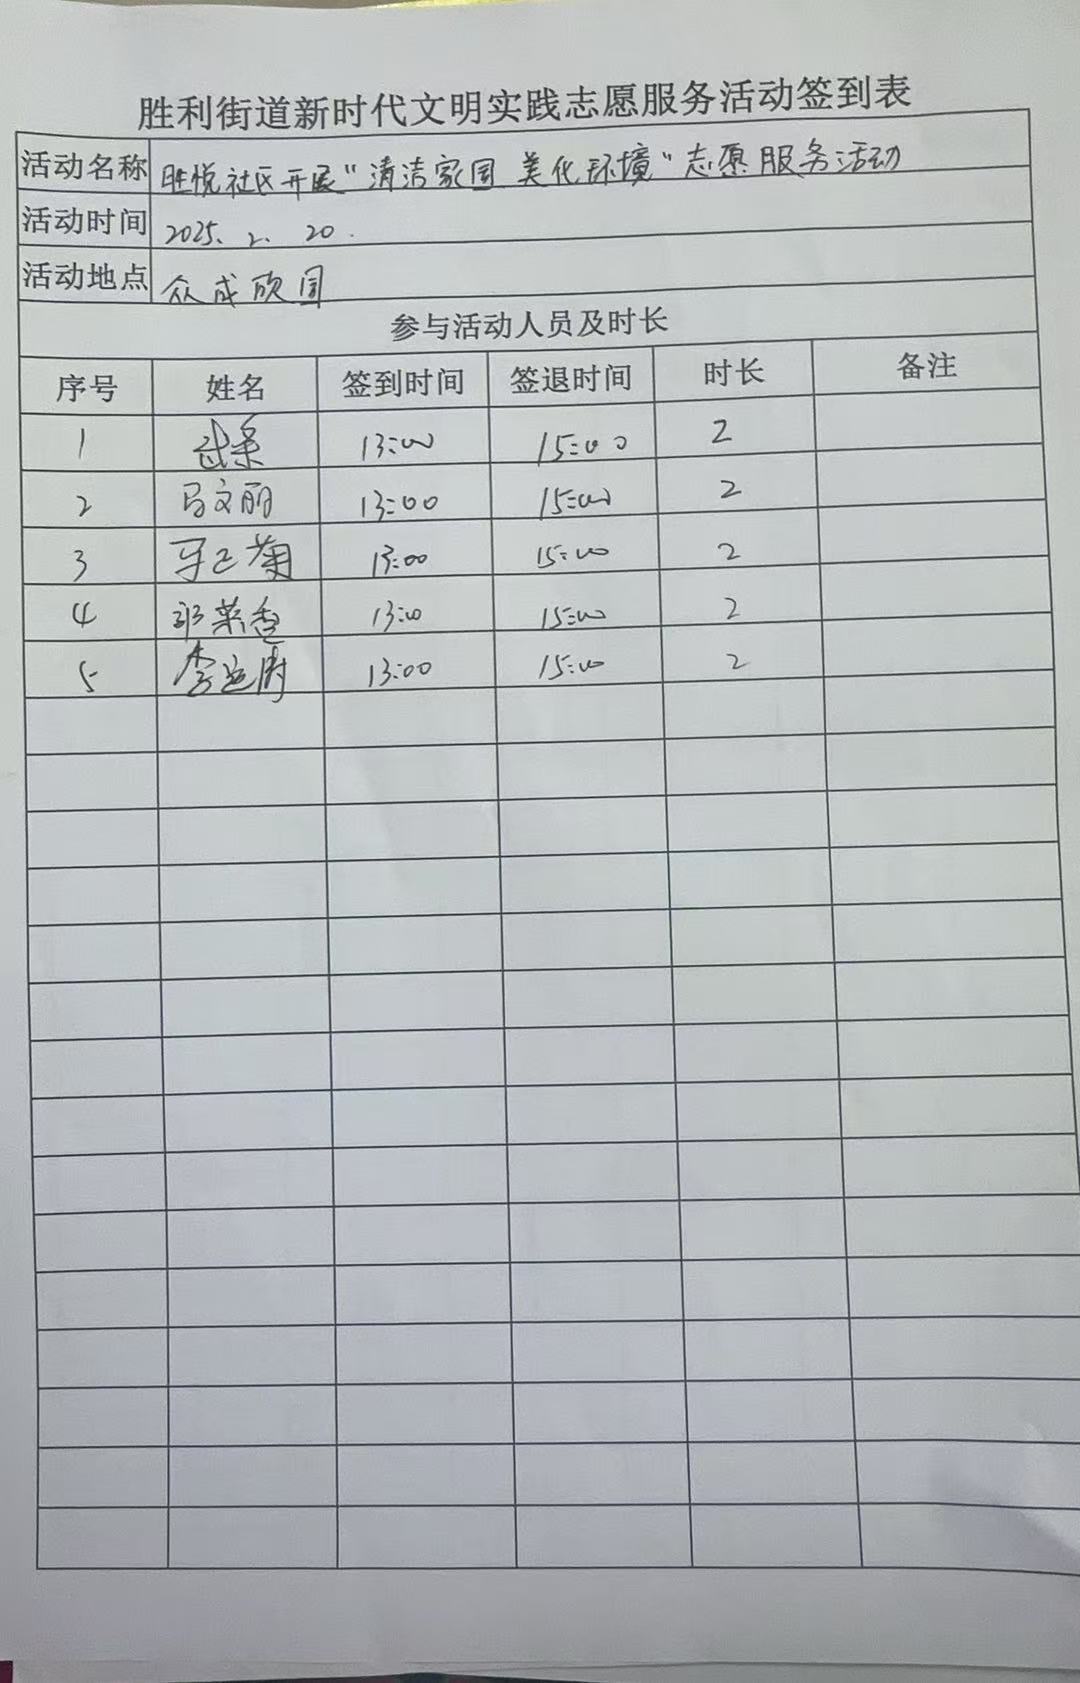 胜利街道新时代文明实践志愿服务活动签到表
活动名称 胜悦社区开展“清洁家园 美化环境”志愿服务活动
活动时间 2025.2.20.
活动地点 众成欣园
参与活动人员及时长
序号 姓名 签到时间 签退时间 时长 备注
1 13:00 15:00 2
2 马文丽 13:00 15:00 2
3 13:00 15:00 2
4 13:00 15:00 2
5 李运涛 13:00 15:00 2